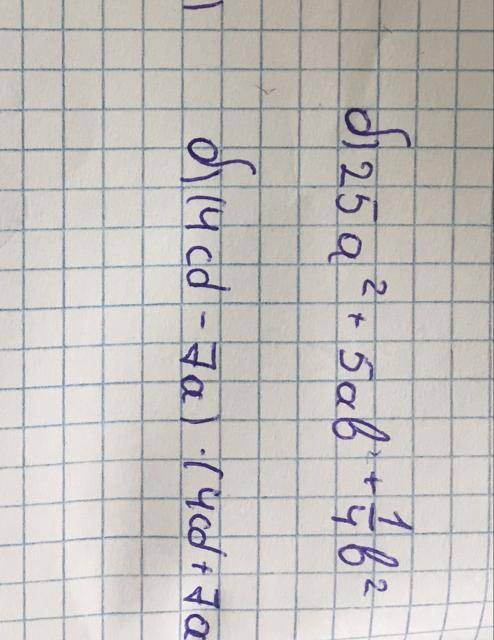 б) 25a² + 5ab + 1/4 b²
б) (4cd - 7a) · (4cd + 7a